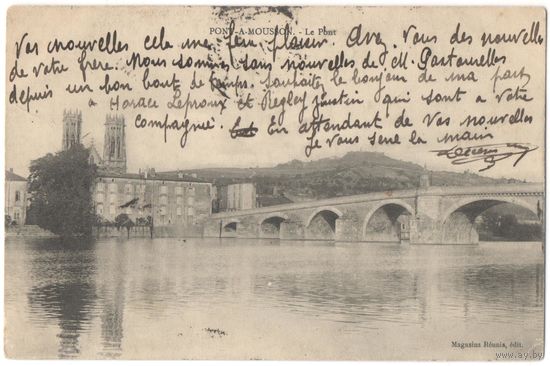 PONT-A-MOUSSON. - Le Pont
Vos nouvelles, cela me fera plaisir. Avez Vous des nouvelles
de votre frère. Nous sommes sans nouvelles de M. Pastourelles
depuis un bon bout de temps. Souhaite le bonjour de ma part
à Horace Leproux et Regley Justin qui sont a votre
Compagnie. En attendant de Vos nouvelles
Je vous serre la main
Magasins Réunis, édit.
www.ay.by